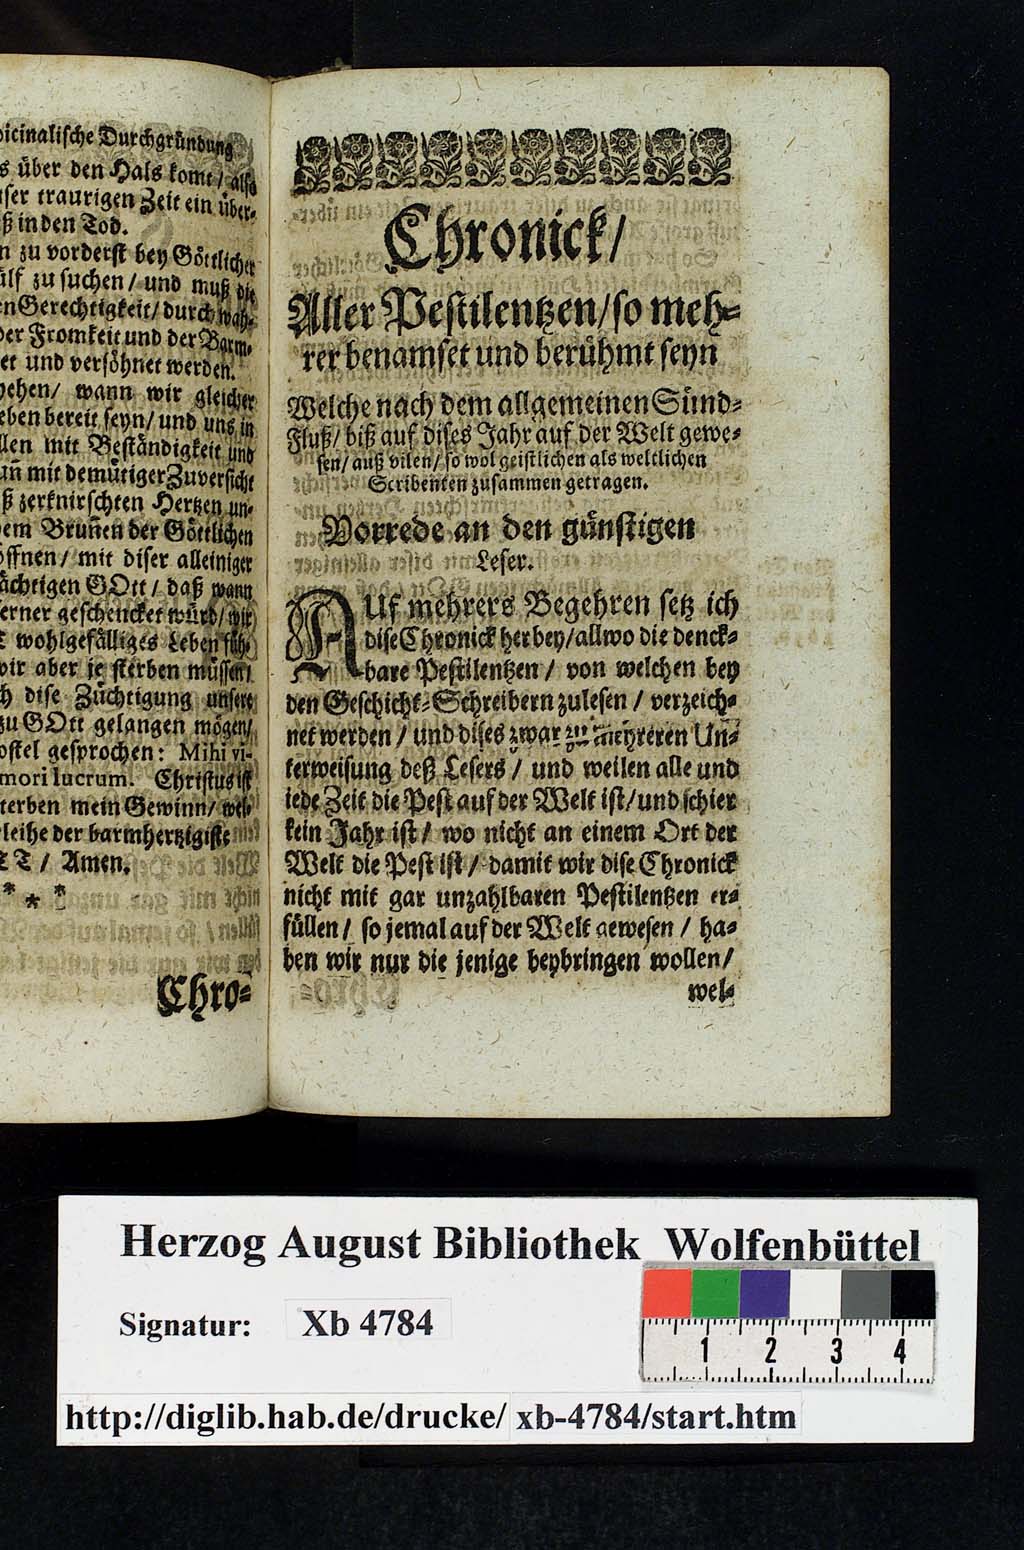 Durchgründung
über den Hals komt / also
traurigen Zeit ein über-
in den Tod.
zu vorderst bey Göttlicher
zu suchen / und muß die
Gerechtigkeit / durch wah-
Fromkeit und der Barm-
und versöhnet werden.
wann wir gleicher
bereit seyn / und uns in
mit Beständigkeit und
mit demütiger Zuversicht
zerknirschten Hertzen un-
Bruñen der Göttlichen
mit diser alleiniger
GOtt / daß wann
geschencket würd / wir
wohlgefälliges Leben füh-
aber je sterben müssen /
dise Züchtigung unsere
zu GOtt gelangen mögen /
gesprochen: Mihi vi-
mori lucrum. Christus ist
mein Gewinn / wel-
der barmhertzigiste
Amen.
* * *
Chro-
Chronick /
Aller Pestilentzen / so meh-
rer benamset und berühmt seyn
Welche nach dem allgemeinen Sünd-
Fluß / biß auf dises Jahr auf der Welt gewe-
sen / auß vilen / so wol geistlichen als weltlichen
Scribenten zusammen getragen.
Vorrede an den günstigen
Leser.
AUf mehrers Begehren setz ich
dise Chronick herbey / allwo die denck-
bare Pestilentzen / von welchen bey
den Geschicht-Schreibern zulesen / verzeich-
net werden / und dises zwar zu mehreren Un-
terweisung deß Lesers / und weilen alle und
iede Zeit die Pest auf der Welt ist / und schier
kein Jahr ist / wo nicht an einem Ort der
Welt die Pest ist / damit wir dise Chronick
nicht mit gar unzahlbaren Pestilentzen er-
füllen / so jemal auf der Welt gewesen / ha-
ben wir nur die jenige beybringen wollen /
wel-
Herzog August Bibliothek Wolfenbüttel
Signatur: Xb 4784
1 2 3 4
http://diglib.hab.de/drucke/ xb-4784/start.htm